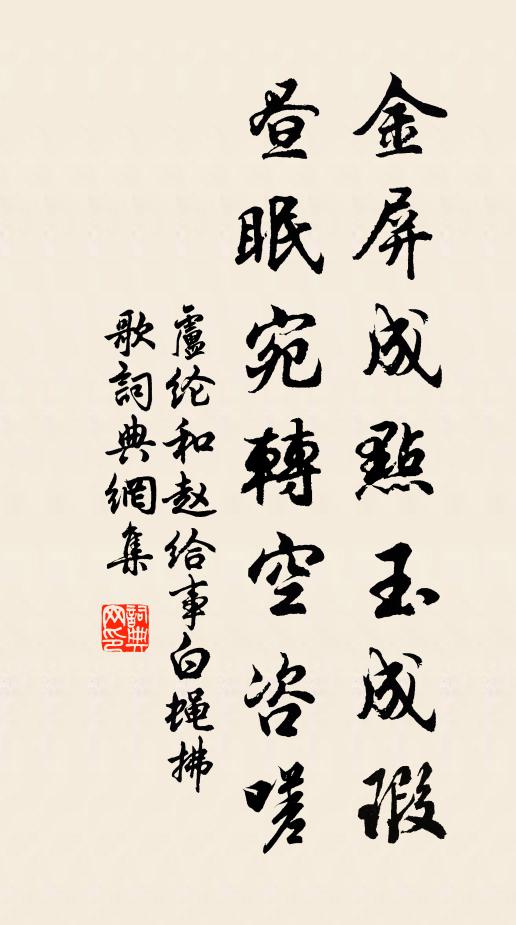 金屏成點玉成瑕
晝眠宛轉空咨嗟
盧纶和赵给事白蝇拂
歌詞典網集
詞典网印